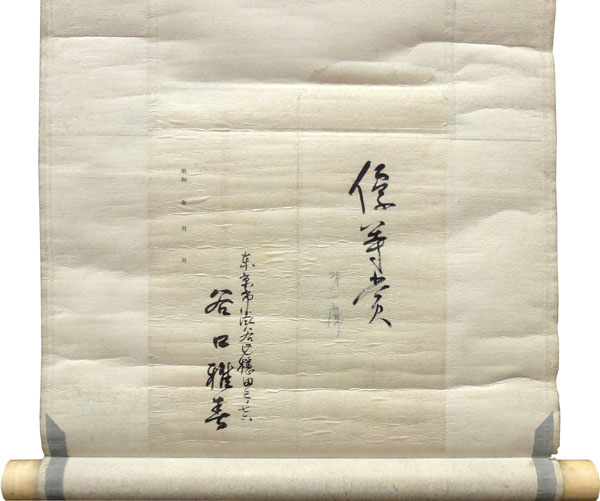 優等賞
東京市渋谷区穏田三ノ
谷口雅春
昭和 年 月 日